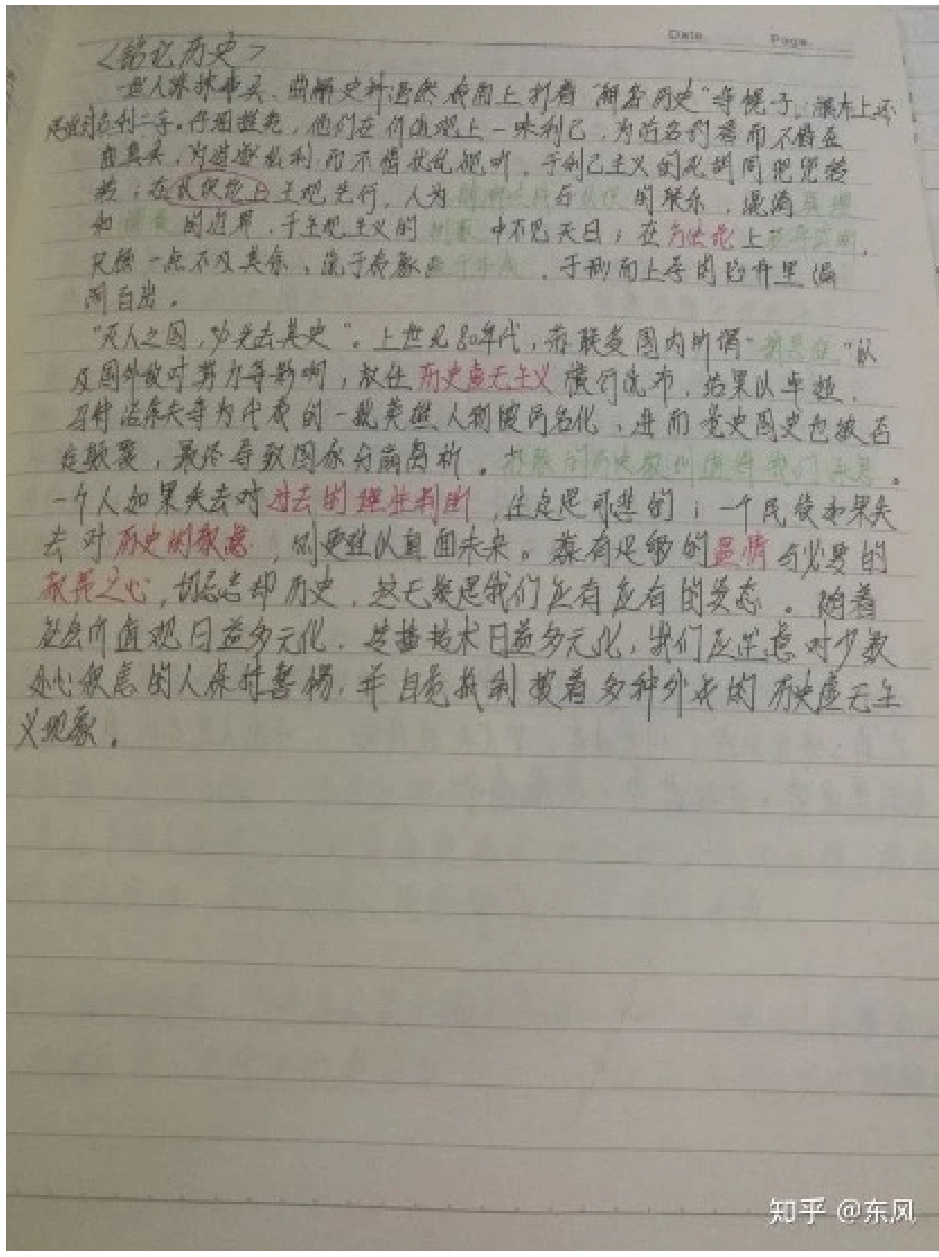 Date. Page.
<铭记历史>
一些人涂抹 、曲解史料,固然表面上打着“解密历史”等幌子,根本上还
是 名利二字。仔细推究,他们在价值观上一味利己,为沽名钓誉而不顾
真实,为追逐私利而不惜扰乱视听,于利己主义的死胡同里兜转
转;在认识论上主观先行,人为 的联系,混淆真理
和 的边界,于主观主义的 中不见天日;在方法论上 ,
只揽一点不及其余,流于表象 ,于形而上学的 里漏
洞百出。
“灭人之国,必先去其史”。上世纪80年代,苏联受国内所谓“ ”以
及国外敌对势力等影响,放任历史虚无主义横行流布,结果以卓娅、
马特洛索夫等为代表的一批英雄人物被污名化,进而党史国史也被否
定颠覆,最终导致国家分崩离析。苏联的历史教训值得我们 。
一个人如果失去对过去的理性判断,注定是可悲的;一个民族如果失
去对历史的敬意,则更难以直面未来。葆有足够的温情与必要的
敬畏之心,切忌忘却历史,这无疑是我们应有应有的姿态。随着
社会价值观日益多元化,传播技术日益多元化,我们应注意对少数
处心积虑的人保持警惕,并自觉抵制披着多种外衣的历史虚无主
义现象。
知乎 @东风